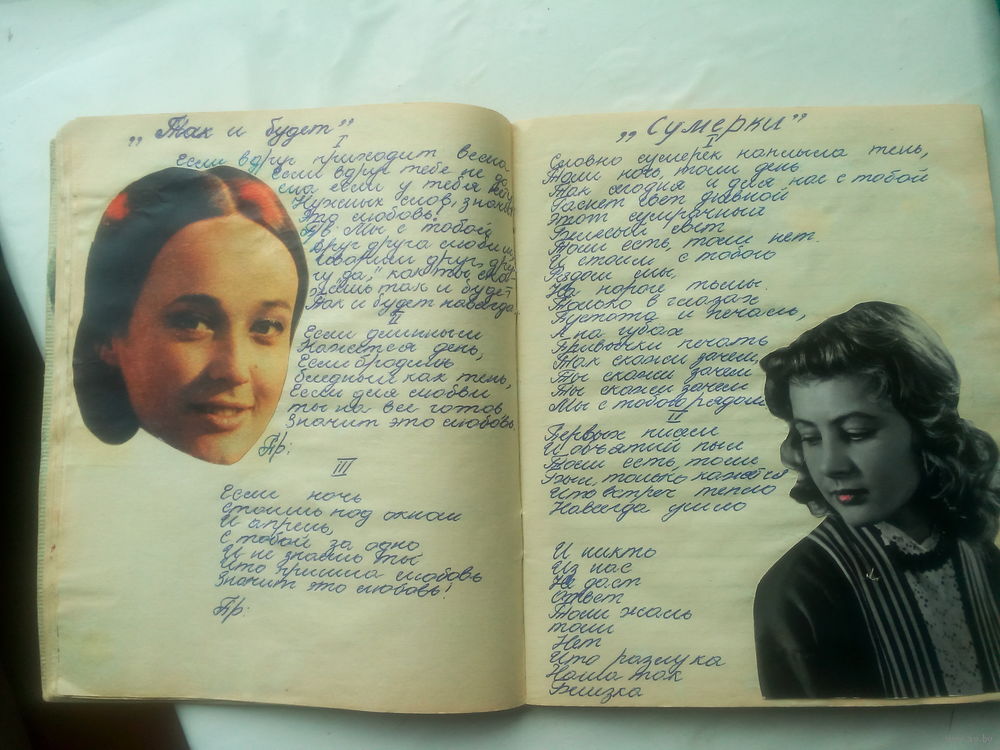 „Так и будет"
I
Если вдруг приходит весна
Если вдруг тебе не до
сна если у тебя нету
Нужных слов, значит
Это любовь!
Пр: Мы с тобой
друг друга любим,
говорим друг дру-
гу "да," как ты ска-
жешь так и будет
Так и будет навсегда.
II
Если длинным
Кажется день,
Если бродишь
бледный как тень,
Если для любви
ты на все готов
Значит это любовь.
Пр:
III
Если ночь
стоишь под окном
И апрель,
с тобой за одно
И не знаешь ты
Что пришла любовь
Значит это любовь!
Пр:
„Сумерки"
I
Словно сумерек наплыла тень,
Толи ночь, толи день
Так сегодня и для нас с тобой
Гаснет свет дневной
Этот сумрачный
Белесый свет
Толи есть, толи нет.
И стоим с тобою
Рядом мы,
На пороге тьмы.
Только в глазах
Пустота и печаль,
А на губах
Привычки печать
Так скажи зачем,
Ты скажи зачем
Ты скажи зачем
Мы с тобою рядом
II
Первых писем
И объятий пыл
Толи есть, толи
Был, только кажется
Что встреч тепло
Навсегда ушло
И никто
Из нас
Не даст
Ответ
Толи жаль
толи
Нет
Что разлука
Наша так
Близка